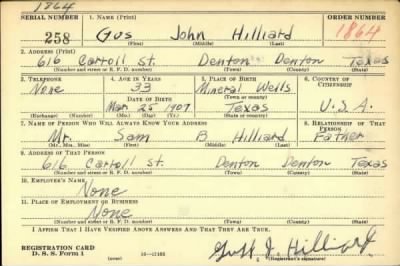 1864
SERIAL NUMBER 1. NAME (Print) ORDER NUMBER
258 Gus John Hilliard 1864
(First) (Middle) (Last)
2. ADDRESS (Print)
616 Carroll St. Denton Denton Texas
(Number and street or R. F. D. number) (Town) (County) (State)
3. TELEPHONE 4. AGE IN YEARS 5. PLACE OF BIRTH 6. COUNTRY OF CITIZENSHIP
None 33 Mineral Wells
DATE OF BIRTH (Town or county)
Mar. 25 1907 Texas U.S.A.
(Exchange) (Number) (Mo.) (Day) (Yr.) (State or country)
7. NAME OF PERSON WHO WILL ALWAYS KNOW YOUR ADDRESS 8. RELATIONSHIP OF THAT PERSON
Mr. Sam B Hilliard Father
(Mr., Mrs., Miss) (First) (Middle) (Last)
9. ADDRESS OF THAT PERSON
616 Carroll St. Denton Denton Texas
(Number and street or R. F. D. number) (Town) (County) (State)
10. EMPLOYER'S NAME
None
11. PLACE OF EMPLOYMENT OR BUSINESS
None
(Number and street or R. F. D. number) (Town) (County) (State)
I AFFIRM THAT I HAVE VERIFIED ABOVE ANSWERS AND THAT THEY ARE TRUE.
REGISTRATION CARD
D. S. S. Form 1 (over) J. Hilliard
(Registrant's signature)